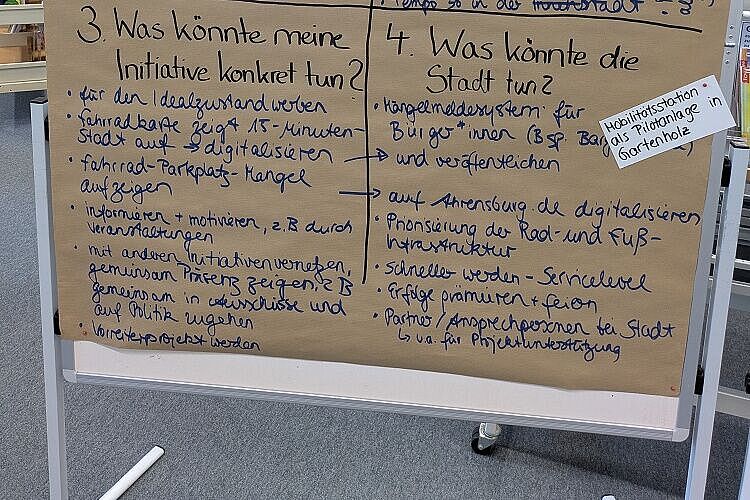 Tempo 30 in der Innenstadt
3. Was könnte meine
Initiative konkret tun?
• für den Idealzustand werben
• Fahrradkarte zeigt 15-Minuten-
Stadt auf → digitalisieren
• Fahrrad-Parkplatz-Mangel
aufzeigen
• informieren + motivieren, z.B durch
Veranstaltungen
• mit anderen Initiativen vernetzen,
gemeinsam Präsenz zeigen, z B
gemeinsam in Ausschüsse und
auf Politik zugehen
• Vorreiterprojekt werden
4. Was könnte die
Stadt tun?
• Mängelmeldesystem für
Bürger*innen (Bsp.
→ und veröffentlichen
→ auf Ahrensburg.de digitalisieren
• Priorisierung der Rad- und Fuß-
Infrastruktur
• schneller werden - Servicelevel
• Erfolge prämieren + feiern
• Partner/Ansprechpersonen bei Stadt
↳ u.a. für Projektunterstützung
Mobilitätsstation
als Pilotanlage in
Gartenholz